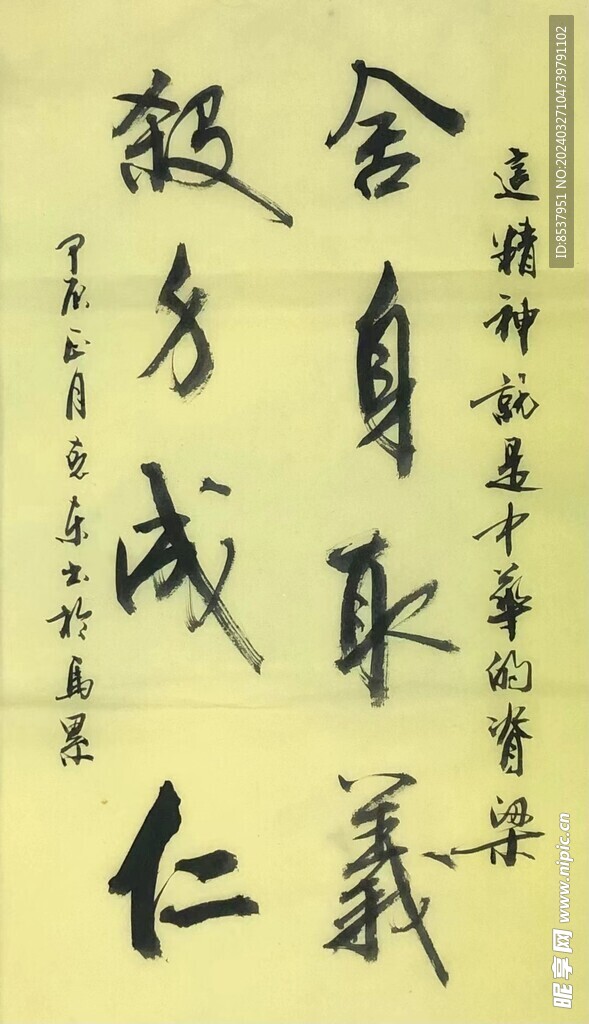 這精神就是中華的脊梁
舍身取義
殺身成仁
甲辰正月克東书於馬累
ID:8537951 NO:20240327104739791102
昵享网 www.nipic.cn